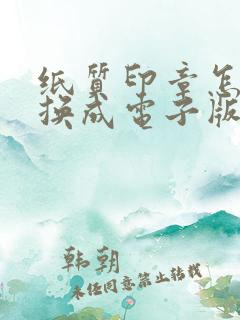 纸质印章怎
换成电子版
韩朝
未经同意禁止转载